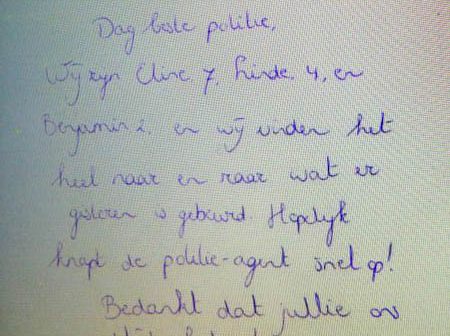 Dag beste politie,
Wij zijn Cline 7, Linde 4, en
Benjamin 2, en wij vinden het
heel naar en raar wat er
gisteren is gebeurd. Hopelijk
knapt de politie-agent snel op!
Bedankt dat jullie ons